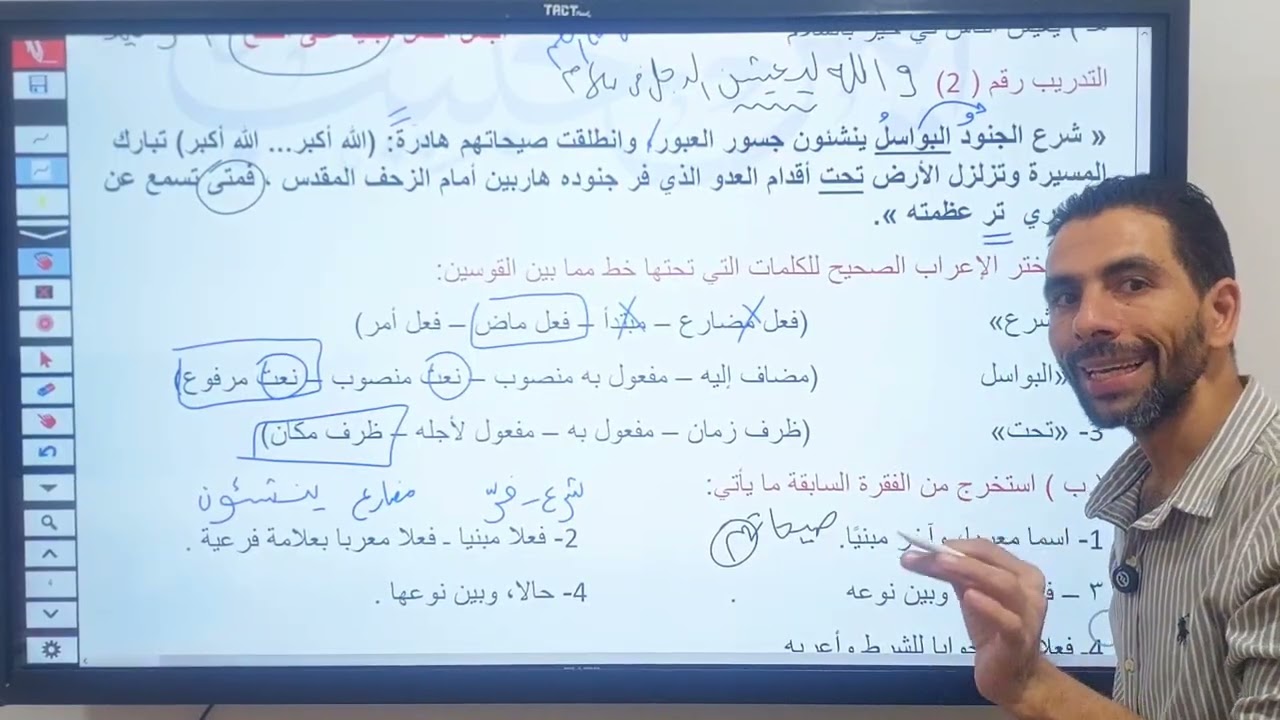 TACT
التدريب رقم ( 2)
والله ليعيشن الرجل في سلام
« شرع الجنود البواسلُ ينشئون جسور العبور، وانطلقت صيحاتهم هادرةً: (الله أكبر... الله أكبر) تبارك
المسيرة وتزلزل الأرض تحت أقدام العدو الذي فر جنوده هاربين أمام الزحف المقدس ، فمتى تسمع عن
تر عظمته ».
الإعراب الصحيح للكلمات التي تحتها خط مما بين القوسين:
شرع» (فعل مضارع – مبتدأ – فعل ماض – فعل أمر)
«البواسل (مضاف إليه – مفعول به منصوب – نعت منصوب – نعت مرفوع)
3- «تحت» (ظرف زمان – مفعول به – مفعول لأجله – ظرف مكان)
ب ) استخرج من الفقرة السابقة ما يأتي:
شرع - فرّ مضارع ينشئون
صيحات
1- اسما معربا، وآخر مبنيًا. 2- فعلا مبنيا ـ فعلا معربا بعلامة فرعية .
٣ – وبين نوعه . 4- حالا، وبين نوعها .
4- فعلا جوابا للشرط وأعربه